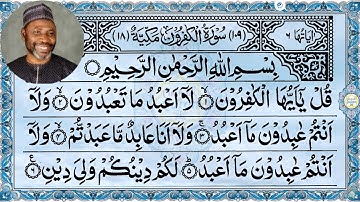 اٰيَاتُهَا ٦ (١٠٩) سُوْرَةُ الْكٰفِرُوْنَ مَكِّيَّةٌ (١٨)
بِسْمِ اللّٰهِ الرَّحْمٰنِ الرَّحِيْمِ
قُلْ يٰٓاَيُّهَا الْكٰفِرُوْنَ ۙ﴿١﴾ لَاۤ اَعْبُدُ مَا تَعْبُدُوْنَ ۙ﴿٢﴾ وَلَاۤ
اَنْتُمْ عٰبِدُوْنَ مَاۤ اَعْبُدُ ۚ﴿٣﴾ وَلَاۤ اَنَا عَابِدٌ مَّا عَبَدْتُّمْ ۙ﴿٤﴾ وَلَاۤ
اَنْتُمْ عٰبِدُوْنَ مَاۤ اَعْبُدُ ؕ﴿٥﴾ لَكُمْ دِيْنُكُمْ وَلِيَ دِيْنِ ﴿٦﴾